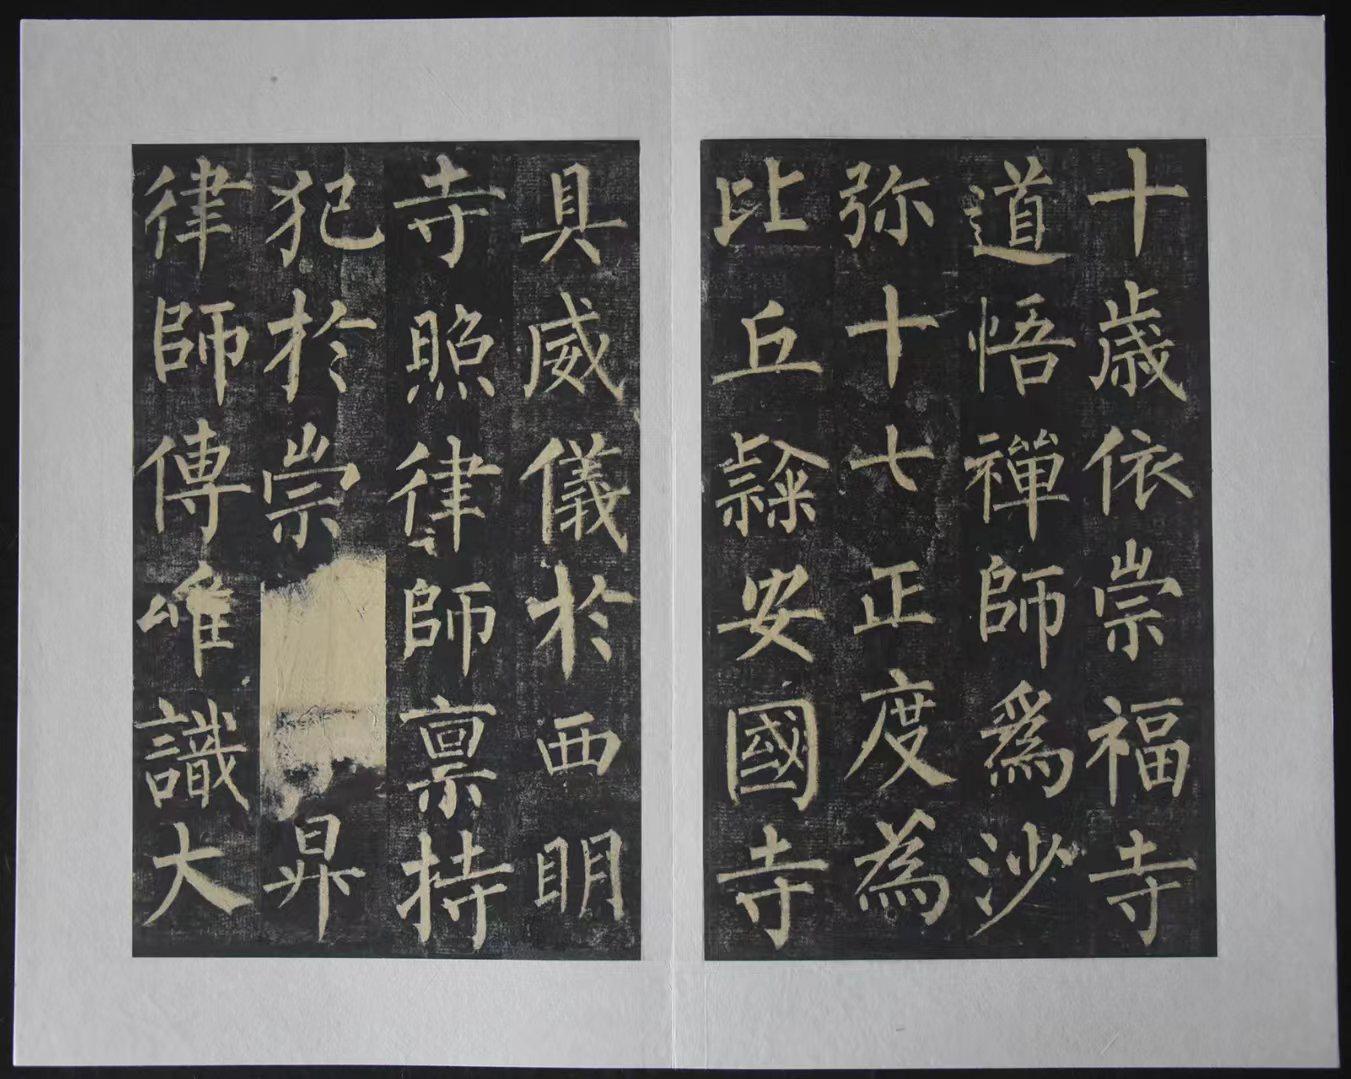 十歳依崇福寺
道悟禪師爲沙
弥十七正度為
比丘隸安國寺
具威儀於西明
寺照律師禀持
犯於崇
昇
律師傳唯識大